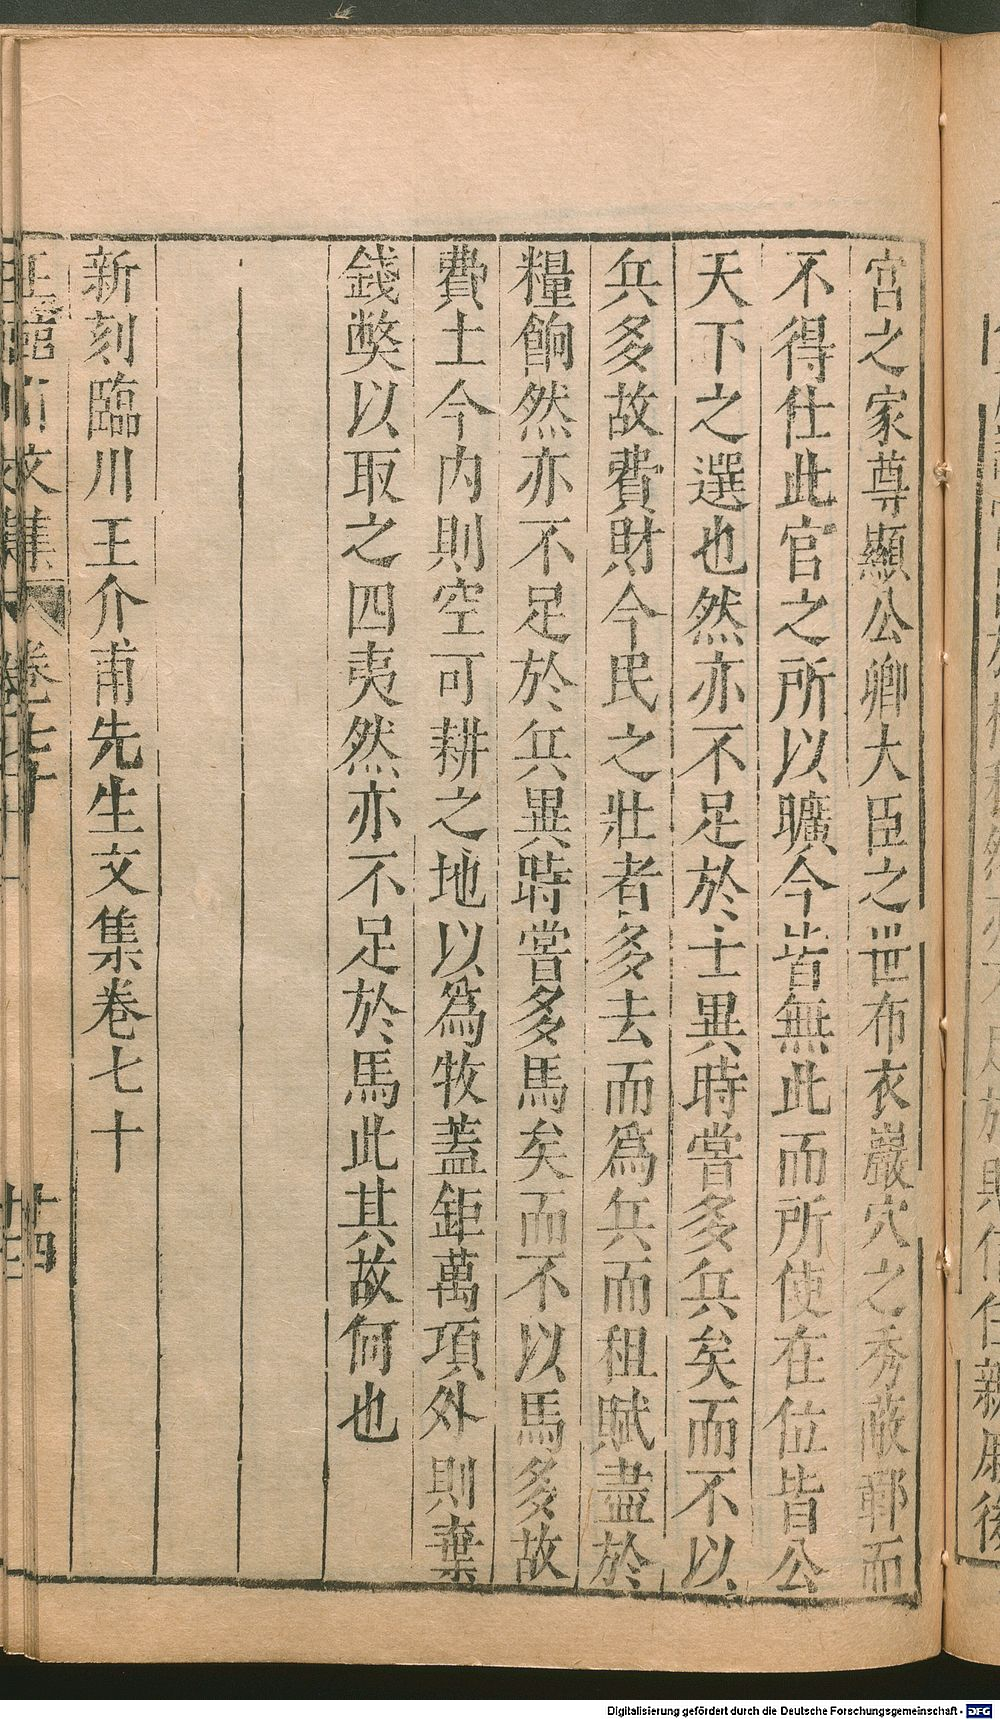 宫之家尊顯公卿大臣之世布衣巖穴之秀蔽鄣而
不得仕此官之所以曠今皆無此而所使在位皆公
天下之選也然亦不足於士異時嘗多兵矣而不以
兵多故費財今民之壯者多去而爲兵而租賦盡於
糧餉然亦不足於兵異時嘗多馬矣而不以馬多故
費土今内則空可耕之地以爲牧蓋鉅萬項外則棄
錢獘以取之四夷然亦不足於馬此其故何也
新刻臨川王介甫先生文集卷七十
王臨川文集 卷七十 廿四
Digitalisierung gefördert durch die Deutsche Forschungsgemeinschaft - DFG